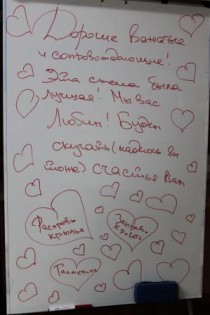 Дорогие Вожатые
и сопровождающие!
Эта смена была
лучшая! Мы вас
Любим! Будем
скучать (надеюсь вы
тоже) счастья Вам
Расправь
крылья
Заправь
кровать